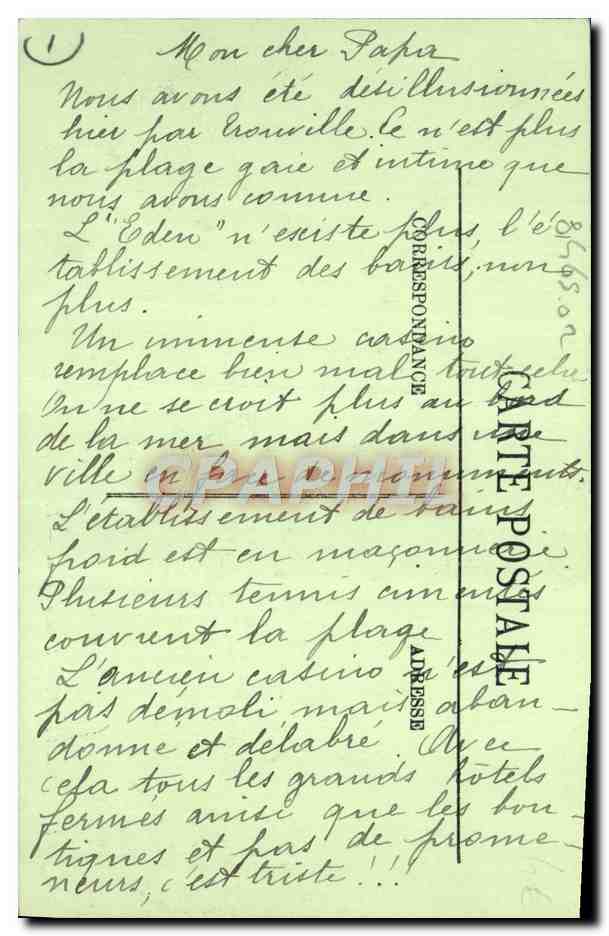 1
Mon cher Papa
Nous avons été désillusionnées
hier par Trouville. Ce n'est plus
la plage gaie et intime que
nous avons connue.
L'"Eden" n'existe plus, l'é
tablissement des bains, non
plus.
Un immense casino
remplace bien mal tout cela
On ne se croit plus au bord
de la mer mais dans une
ville en de monuments.
L'établissement de bains
froid est en maçonnerie.
Plusieurs tennis cimentés
couvrent la plage
L'ancien casino n'est
pas démoli mais aban-
donné et délabré. Avec
cela tous les grands hôtels
fermés ainsi que les bou-
tiques et pas de prome-
neurs, c'est triste!!!
CORRESPONDANCE
ADRESSE
CARTE POSTALE
CPAPHIL